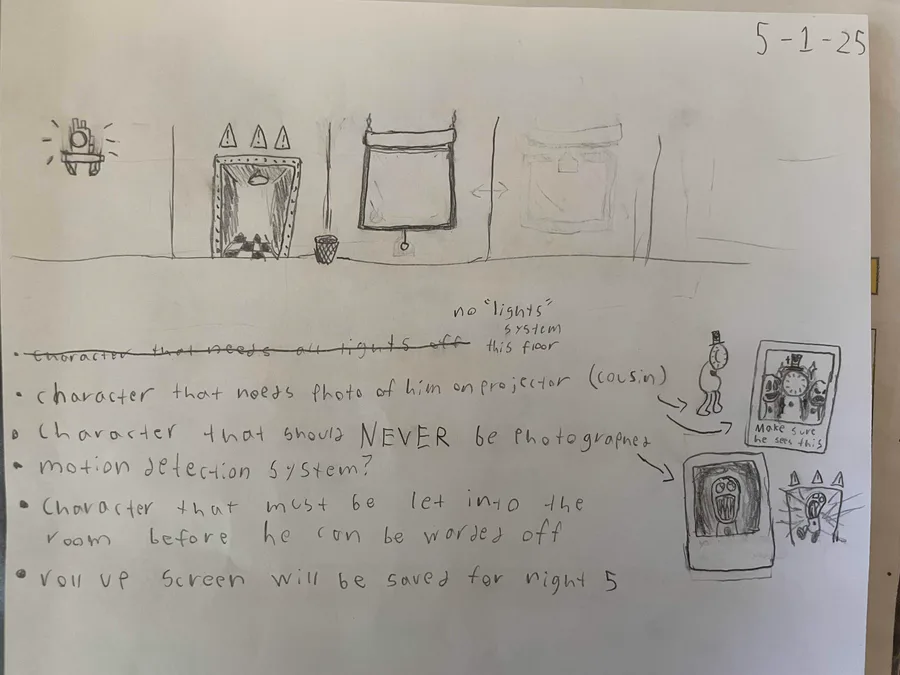 5-1-25
no "lights"
system
this floor
• Character that needs all lights off
• character that needs Photo of him on projector (cousin)
• Character that should NEVER be photographed
• motion detection system?
• Character that must be let into the
room before he can be warded off
• roll up screen will be saved for night 5
Make sure
he sees this